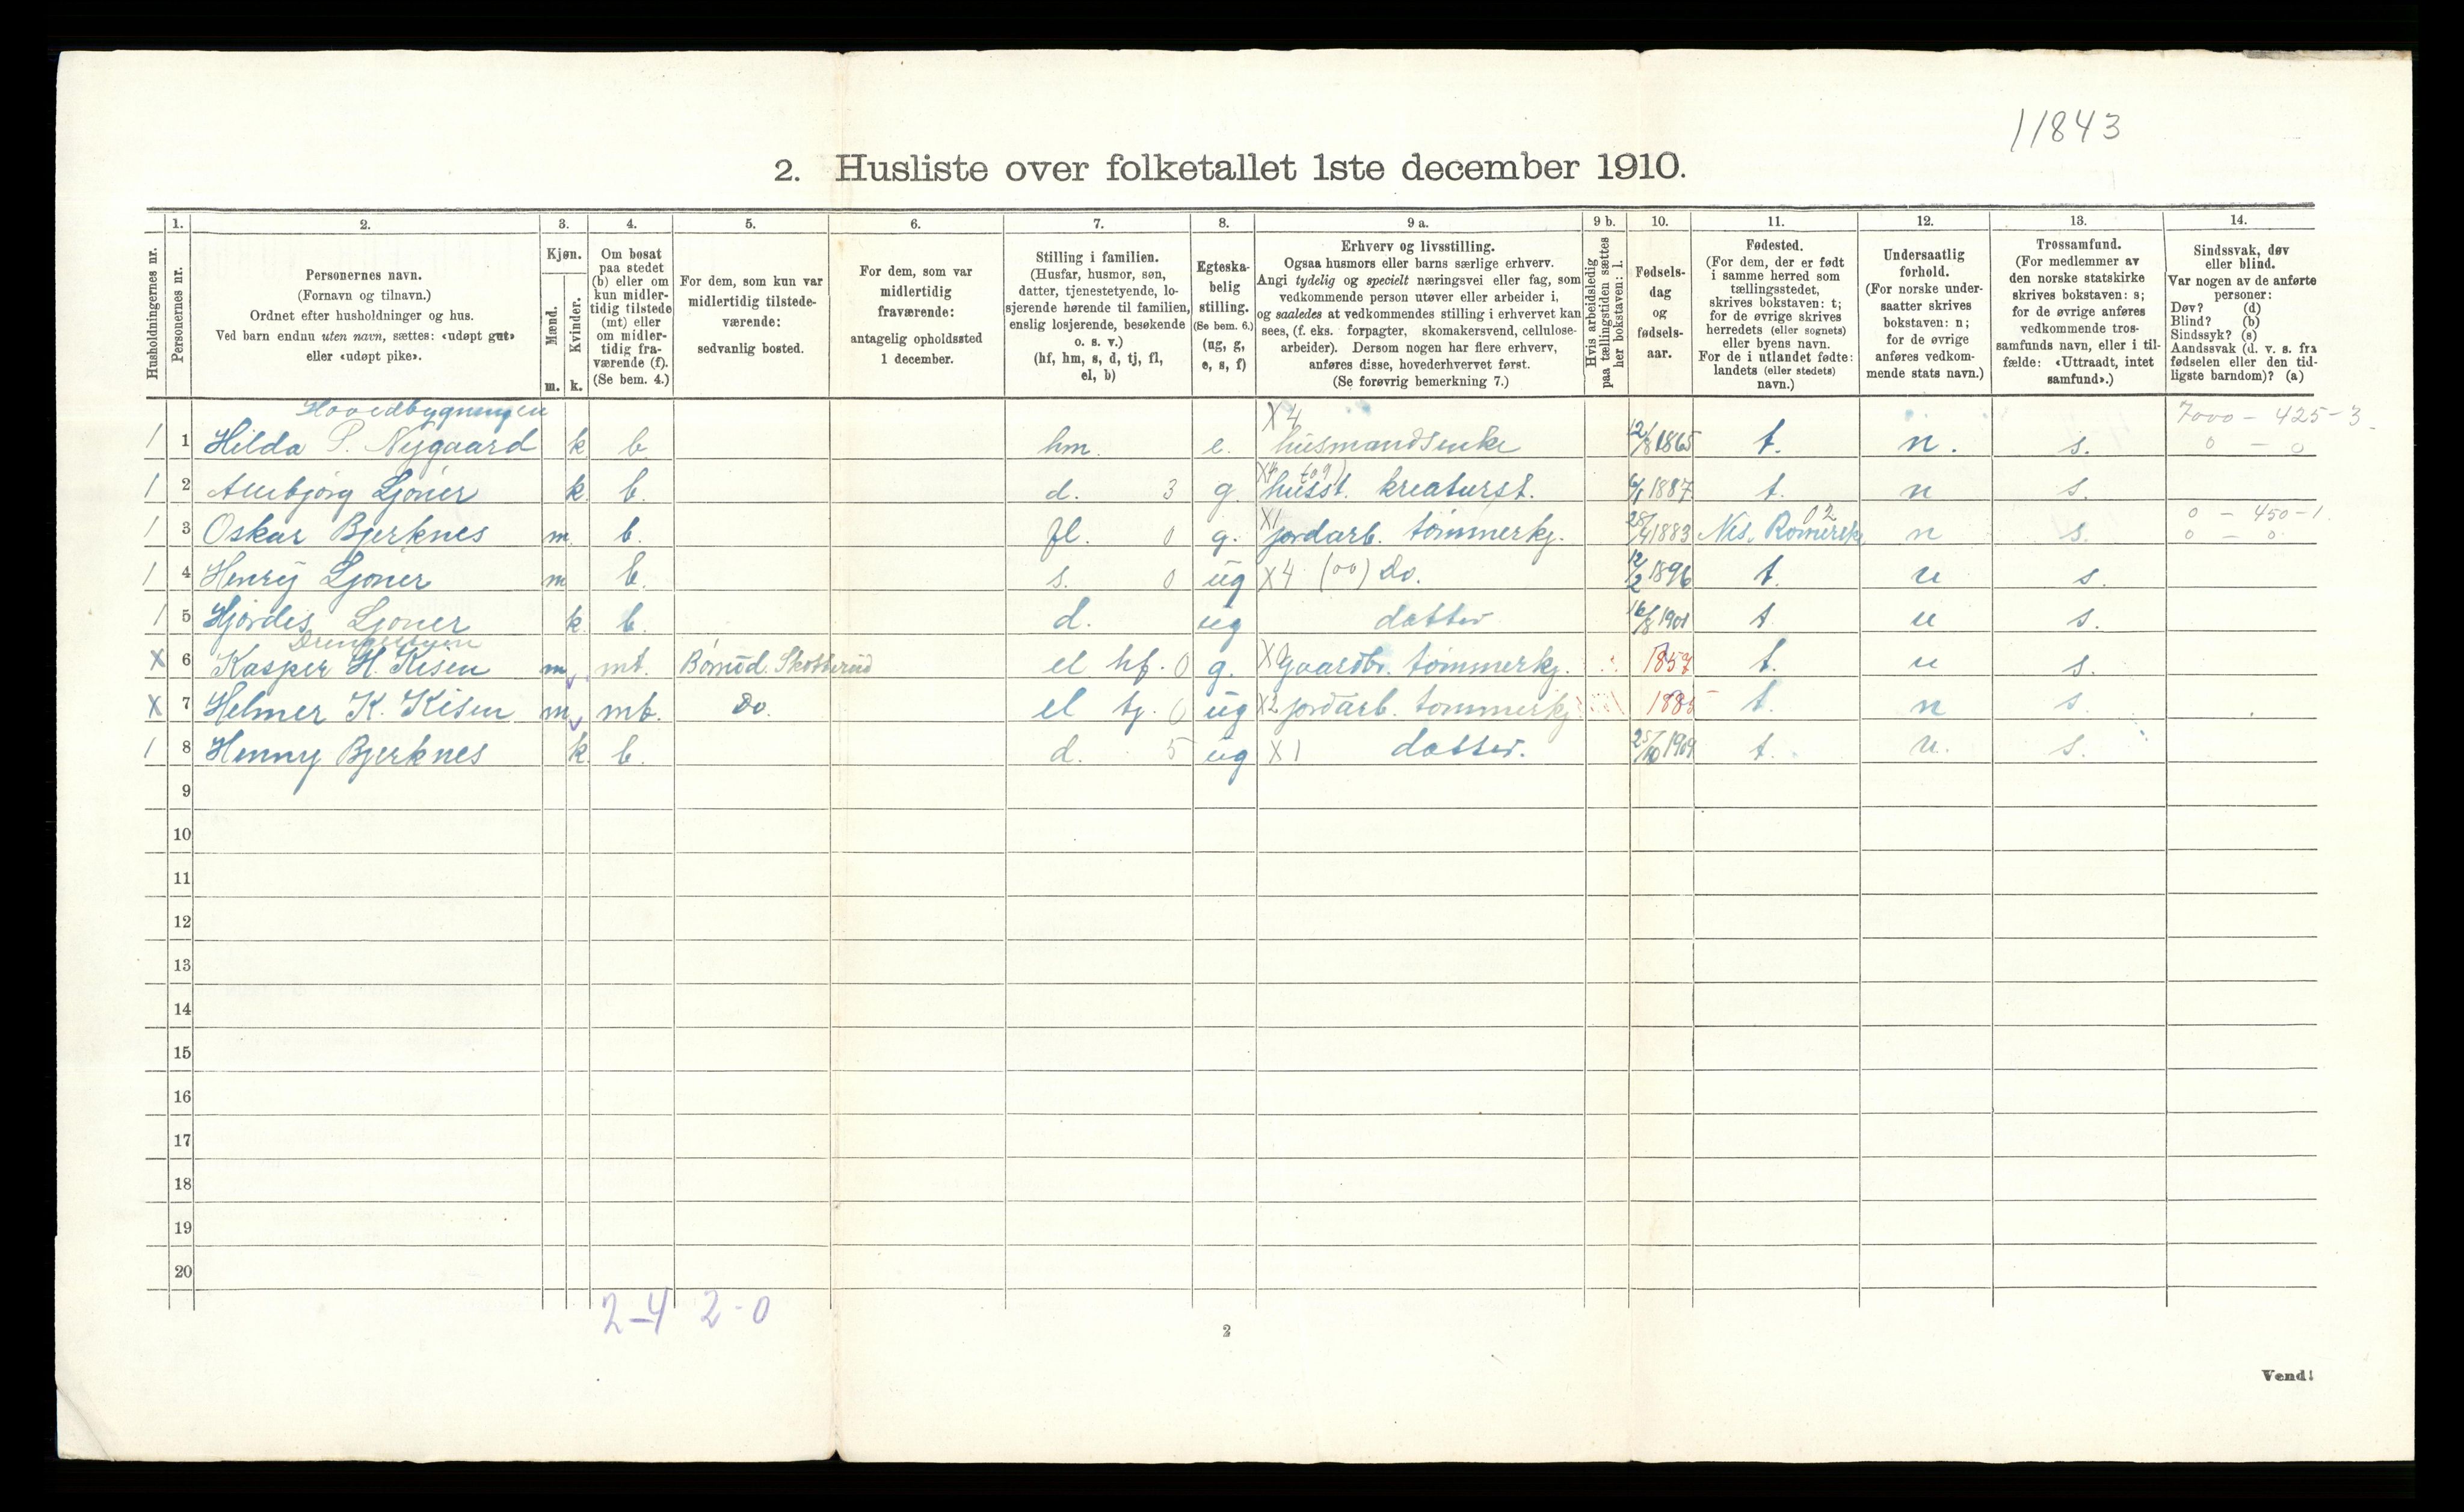 11843
2. Husliste over folketallet 1ste december 1910.
Husholdningernes nr.
1.
Personernes nr.
2.
Personernes navn.
(Fornavn og tilnavn.)
Ordnet efter husholdninger og hus.
Ved barn endnu uten navn, sættes: «udøpt gut»
eller «udøpt pike».
3.
Kjøn.
Mænd.
m.
Kvinder.
k.
4.
Om bosat
paa stedet
(b) eller om
kun midler-
tidig tilstede
(mt) eller
om midler-
tidig fra-
værende (f).
(Se bem. 4.)
5.
For dem, som kun var
midlertidig tilstede-
værende:
sedvanlig bosted.
6.
For dem, som var
midlertidig
fraværende:
antagelig opholdssted
1 december.
7.
Stilling i familien.
(Husfar, husmor, søn,
datter, tjenestetyende, lo-
sjerende hørende til familien,
enslig losjerende, besøkende
o. s. v.)
(hf, hm, s, d, tj, fl,
el, b)
8.
Egteska-
belig
stilling.
(Se bem. 6.)
(ug, g,
e, s, f)
9 a.
Erhverv og livsstilling.
Ogsaa husmors eller barns særlige erhverv.
Angi tydelig og specielt næringsvei eller fag, som
vedkommende person utøver eller arbeider i,
og saaledes at vedkommendes stilling i erhvervet kan
sees, (f. eks. forpagter, skomakersvend, cellulose-
arbeider). Dersom nogen har flere erhverv,
anføres disse, hovederhvervet først.
(Se forøvrig bemerkning 7.)
9 b.
Hvis arbeidsledig
paa tællingstiden sættes
her bokstaven: l.
10.
Fødsels-
dag
og
fødsels-
aar.
11.
Fødested.
(For dem, der er født
i samme herred som
tællingsstedet,
skrives bokstaven: t;
for de øvrige skrives
herredets (eller sognets)
eller byens navn.
For de i utlandet fødte:
landets (eller stedets)
navn.)
12.
Undersaatlig
forhold.
(For norske under-
saatter skrives
bokstaven: n;
for de øvrige
anføres vedkom-
mende stats navn.)
13.
Trossamfund.
(For medlemmer av
den norske statskirke
skrives bokstaven: s;
for de øvrige anføres
vedkommende tros-
samfunds navn, eller i til-
fælde: «Uttraadt, intet
samfund».)
14.
Sindssvak, døv
eller blind.
Var nogen av de anførte
personer:
Døv? (d)
Blind? (b)
Sindssyk? (s)
Aandssvak (d. v. s. fra
fødselen eller den tid-
ligste barndom)? (a)
Hovedbygningen X4 7000 - 425-3
1 1 Hilda P. Nygaard k b. hm. e. husmandsenke 12/8 1865 t. n. s. 0 - 0
X4 to9)
1 2 Ljöner k. b. d. 3 g. husst. kreaturst. 6/1 1887 t. n s.
X1 02 0 - 450-1
1 3 Oskar Bjerknes m. b. fl. 0 g. jordarb. tømmerkj. 28/4 1883 Nes. Romerike n s. 0 - 0
1 4 Henry Ljöner m b. s. 0 ug X4 (00) Do. 12/2 1896 t. n s.
1 5 Hjördis Ljöner k. b. d. ug datter 16/8 1901 t. n s.
Drengestuen
X 6 Kasper H. Kisen m. mt. Börrud. Skotterud el hf. 0 g. X0 gaardbr. tømmerkj. 1857 t. n s.
X 7 Helmer K. Kisen m. mt. Do. el tj. 0 ug X2 jordarb. tømmerkj 1885 t. n s.
1 8 Henny Bjerknes k. b. d. 5 ug X1 datter. 25/10 1909 t. n. s.
9
10
11
12
13
14
15
16
17
18
19
20
2-4 2-0
2
Vend!